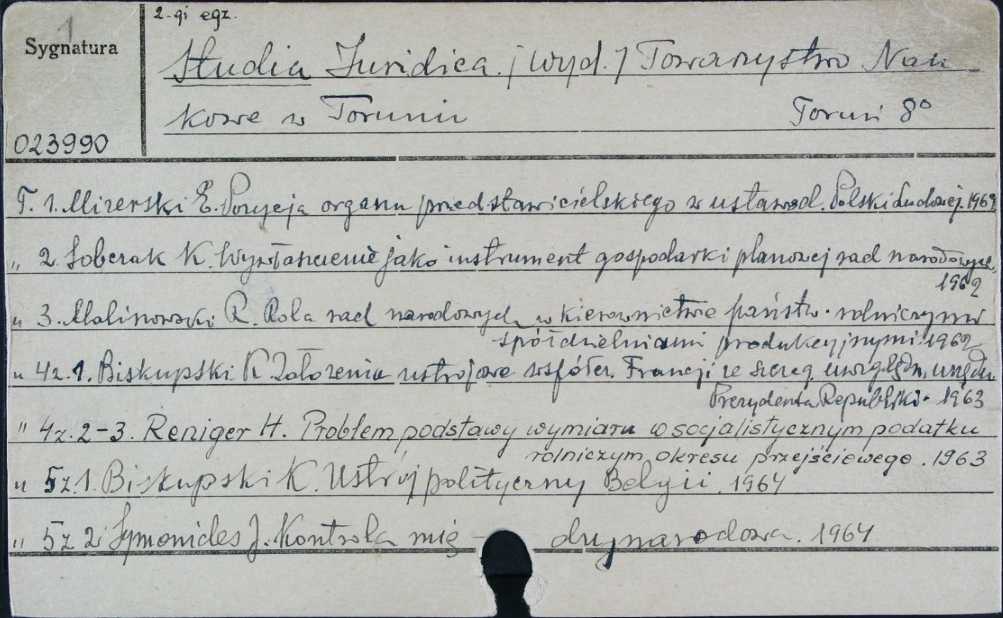 1
2-gi egz.
Sygnatura
Studia Juridica. / Wyd. / Towarzystwo Nau-
kowe w Toruniu Toruń 8°
023990
T. 1. Mizerski E. Pozycja organu przedstawicielskiego w ustawod. Polski Ludowej. 1962
" 2. Sobczak K. Wywłaszczenie jako instrument gospodarki planowej rad narodowych.
1962
" 3. Malinowski R. Rola rad narodowych w kierownictwie państw. rolniczymi
spółdzielniami produkcyjnymi. 1962
" 4z.1. Biskupski K Założenia ustrojowe współcz. Francji ze szczeg. uwzględn. urzędu
Prezydenta Republiki. 1963
" 4z. 2-3. Reniger H. Problem podstawy wymiaru w socjalistycznym podatku
rolniczym okresu przejściowego. 1963
" 5z.1. Biskupski K. Ustrój polityczny Belgii. 1964
" 5z 2 Symonides J. Kontrola mię - dzynarodowa. 1964